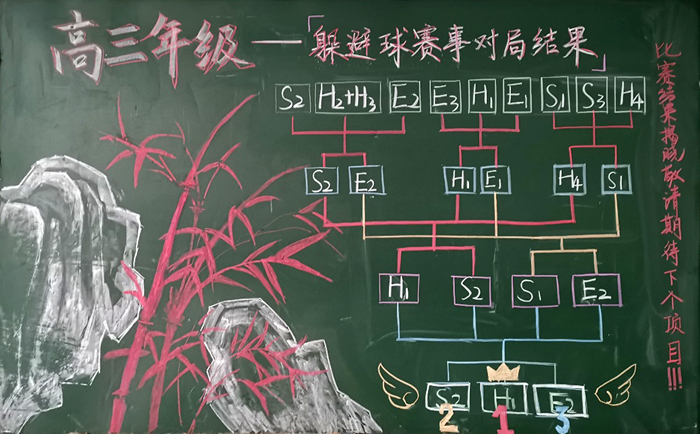 高三年级—「躲避球赛事对局结果」
S2 H2+H3 E2 E3 H1 E1 S1 S3 H4
S2 E2 H1 E1 H4 S1
H1 S2 S1 E2
S2 H1 E2
2 1 3
比赛结果揭晓敬请期待下个项目!!!